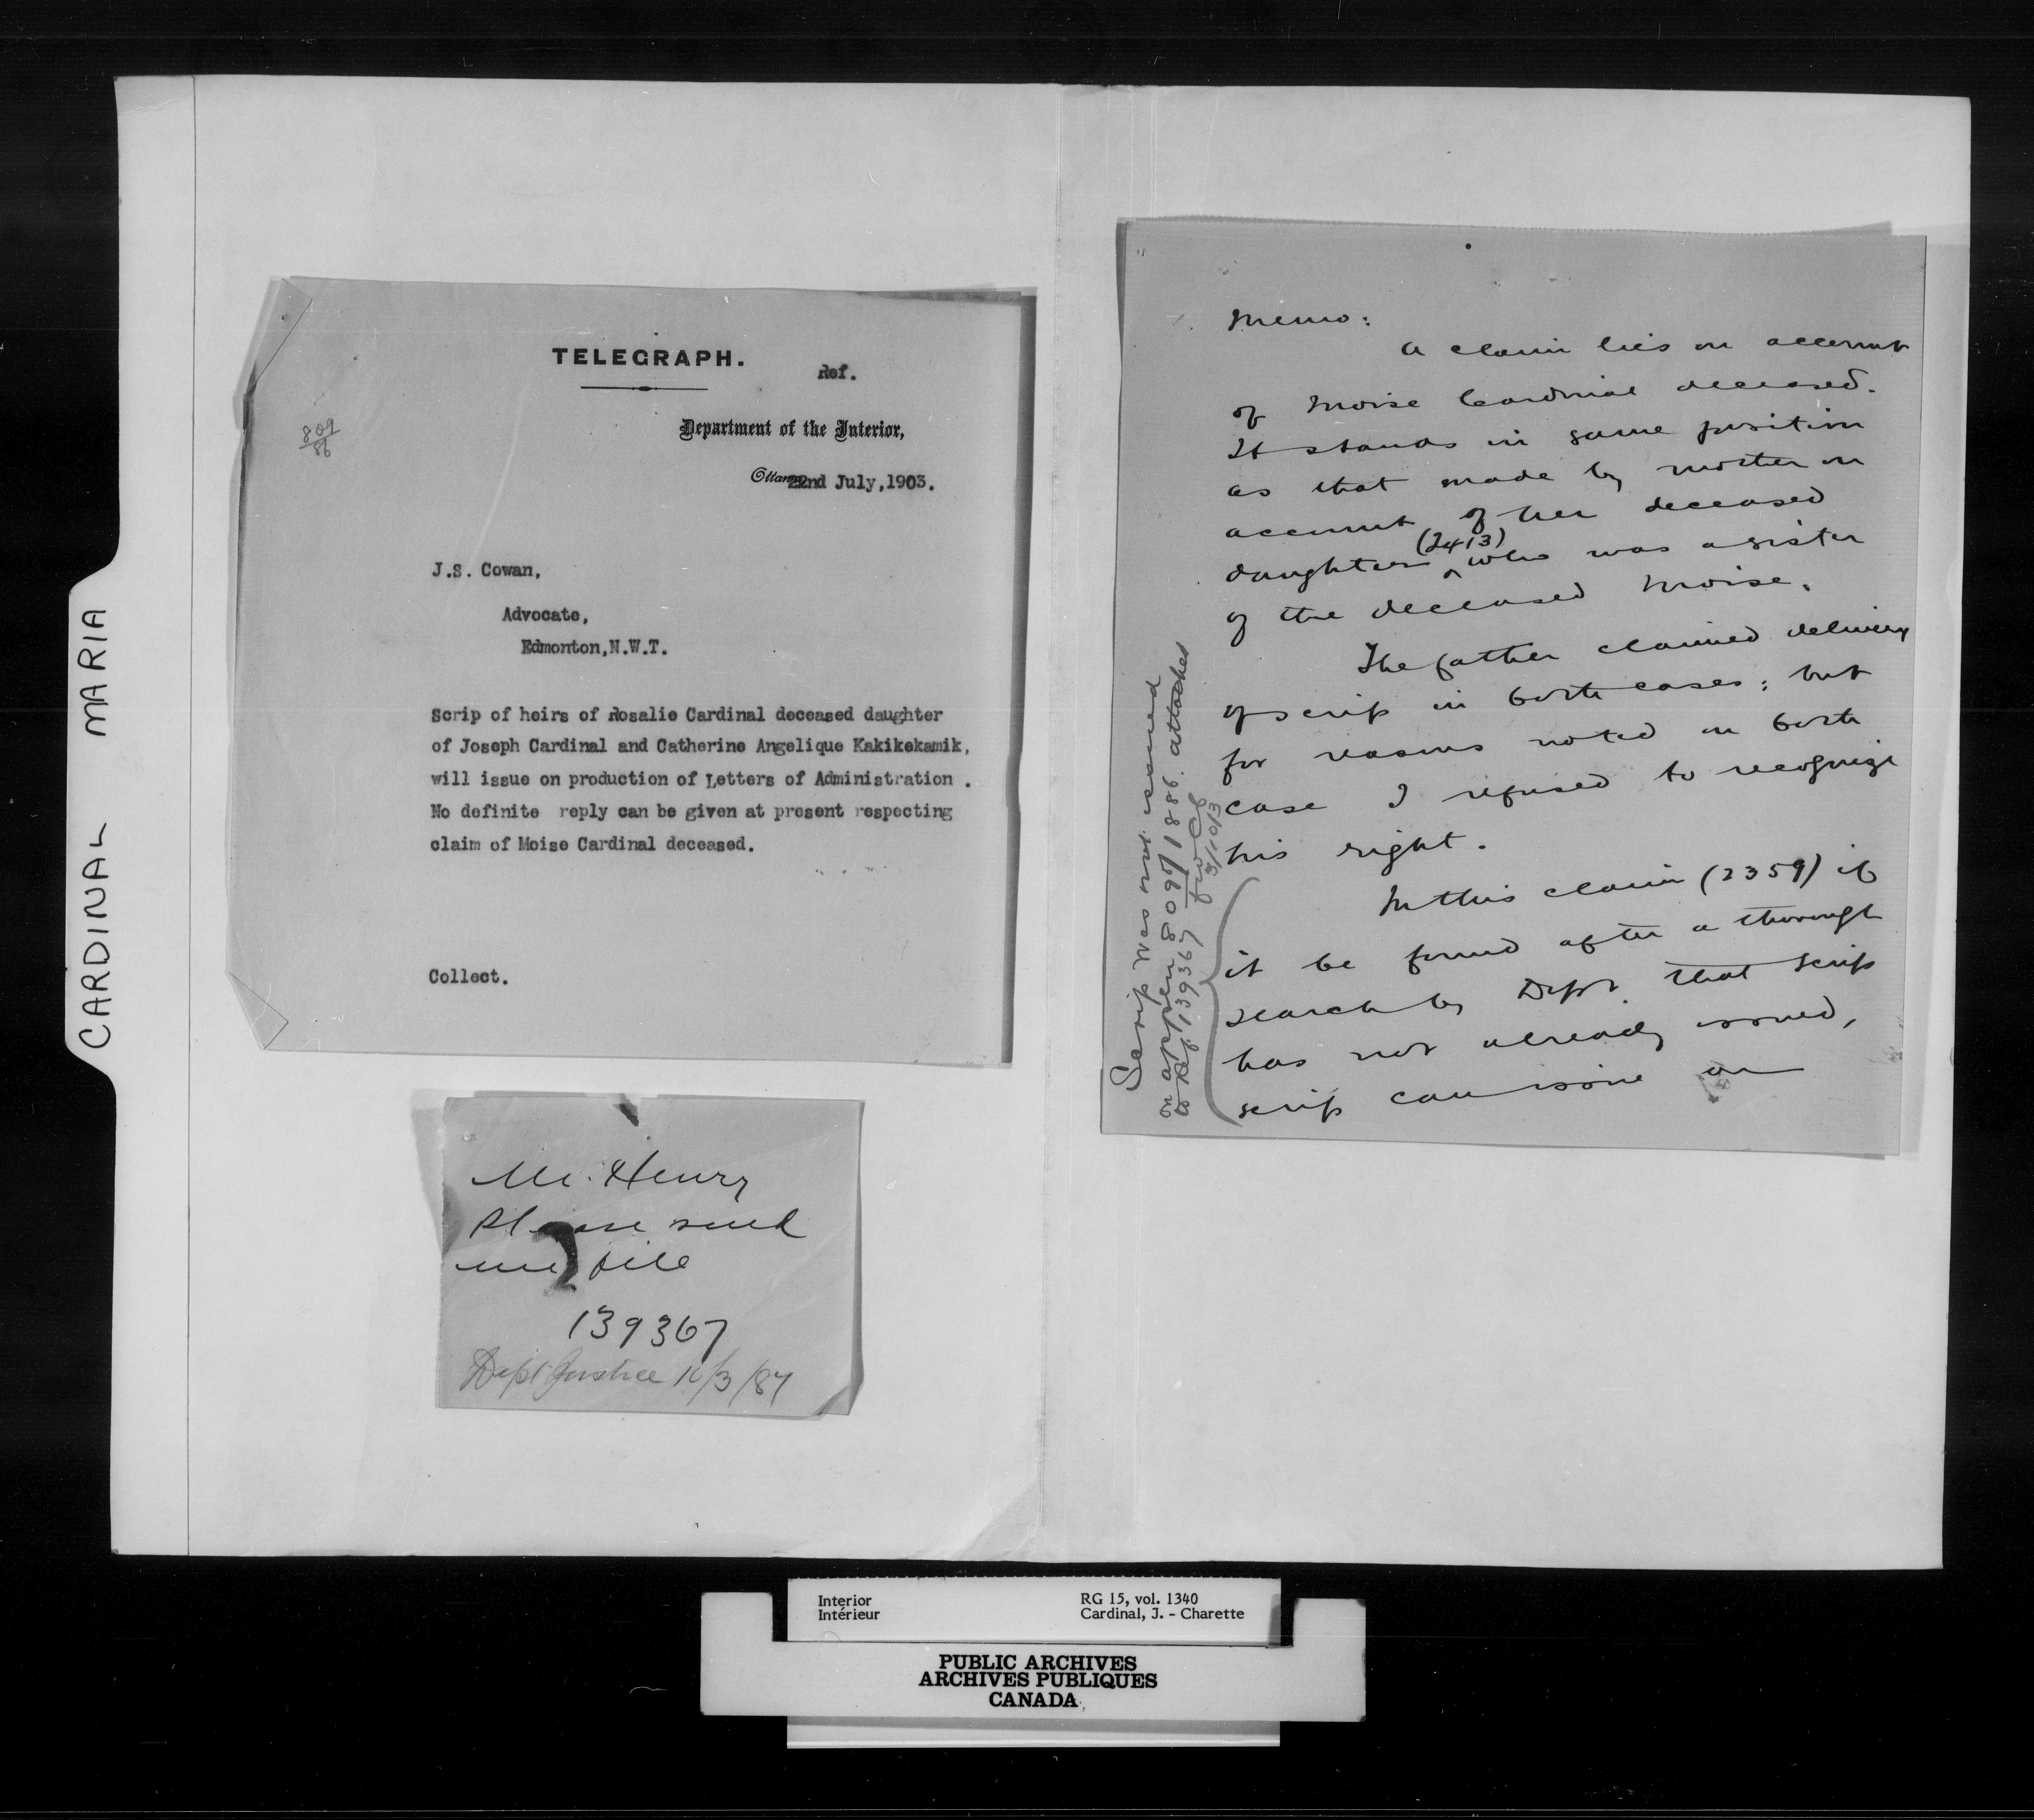 CARDINAL MARIA
TELEGRAPH.
Ref.
Department of the Interior,
809
86
Ottawa 22nd July,1903.
J.S. Cowan,
Advocate,
Edmonton,N.W.T.
Scrip of heirs of Rosalie Cardinal deceased daughter
of Joseph Cardinal and Catherine Angelique Kakikekamik,
will issue on production of Letters of Administration .
No definite reply can be given at present respecting
claim of Moise Cardinal deceased.
Collect.
Mr. Henry
Please send
me file
139367
Dept Justice 10/3/87
Memo:
A claim lies on account
of Moise Cardinal deceased.
It stands in same position
as that made by mother on
account of her deceased
daughter (2413) who was a sister
of the deceased Moise.
The father claimed delivery
of scrip in both cases; but
for reasons noted on both
case I refused to recognize
his right.
In this claim (2359) if
it be found after a thorough
search by Dept. that scrip
has not already issued,
scrip can issue on
Scrip was not issued
on appln 809/1886. attached
to Ref 139367
3/10/13
Interior
Intérieur
RG 15, vol. 1340
Cardinal, J. - Charette
PUBLIC ARCHIVES
ARCHIVES PUBLIQUES
CANADA